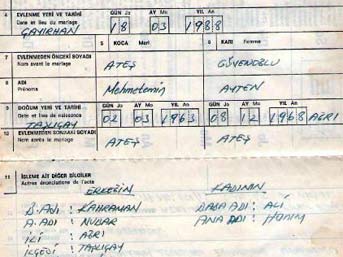 4 EVLENME YERİ VE TARİHİ GÜN Jo AY Mo YIL An
Date et lieu du mariage
ÇAYIRHAN 18 03 1988
5 KOCA Mari 6 KARI Femme
7 EVLENMEDEN ÖNCEKİ SOYADI
Nom avant le mariage ATEŞ GÜVENOĞLU
8 ADI
Prénoms Mehmetemin AYTEN
9 DOĞUM YERİ VE TARİHİ GÜN Jo AY Mo YIL An GÜN Jo AY Mo YIL An
Date et lieu de naissance
TAŞLIÇAY 02 03 1963 08 12 1968 AĞRI
10 EVLENMEDEN SONRAKİ SOYADI
Nom après le mariage ATEŞ ATEŞ
11 İŞLEME AİT DİĞER BİLGİLER
Autres énonciations de l'acte
ERKEĞİN KADININ
B.ADI : KAHRAMAN BABA ADI : ALİ
A.ADI : NUBAR ANA ADI : HANIM
İLİ : AĞRI
İLÇESİ : TAŞLIÇAY